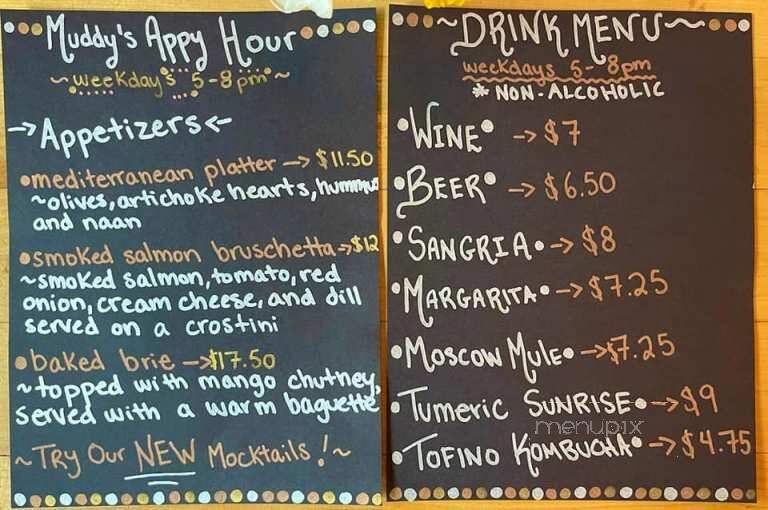 Muddy's Appy Hour
~weekday's 5-8pm~
→Appetizers←
•mediterranean platter → $11.50
~olives, artichoke hearts, hummus
and naan
•smoked salmon bruschetta→$12
~smoked salmon, tomato, red
onion, cream cheese, and dill
served on a crostini
•baked brie →$17.50
~topped with mango chutney,
served with a warm baguette
~Try Our NEW Mocktails!~
~DRINK MENU~
weekdays 5-8pm
* NON-ALCOHOLIC
•WINE• → $7
•BEER• → $6.50
•SANGRIA• → $8
•MARGARITA• → $7.25
•MOSCOW MULE• →$7.25
•TUMERIC SUNRISE• →$9
menupix
•TOFINO KOMBUCHA• →$4.75